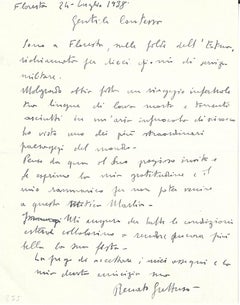 Floresta 24 luglio 1938
Gentile Contessa
Sono a Floresta, nelle falde dell'Etna,
richiamato per dieci giorni di servizio
militare.
Malgrado abbia fatto un viaggio infernale
tra lingue di lava morta e torrenti
asciutti in un'aria infuocata di scirocco
ho visto uno dei più straordinari
paesaggi del mondo.
Penso da qua al Suo prezioso invito e
Le esprimo la mia gratitudine e il
mio rammarico per non poter venire
a questo Martin.
Mi auguro che tutte le condizioni
estive collaborino a rendere ancora più
bella la sua festa.
La prego di accettare i miei ossequi e la
mia devota amicizia suo
Renato Guttuso